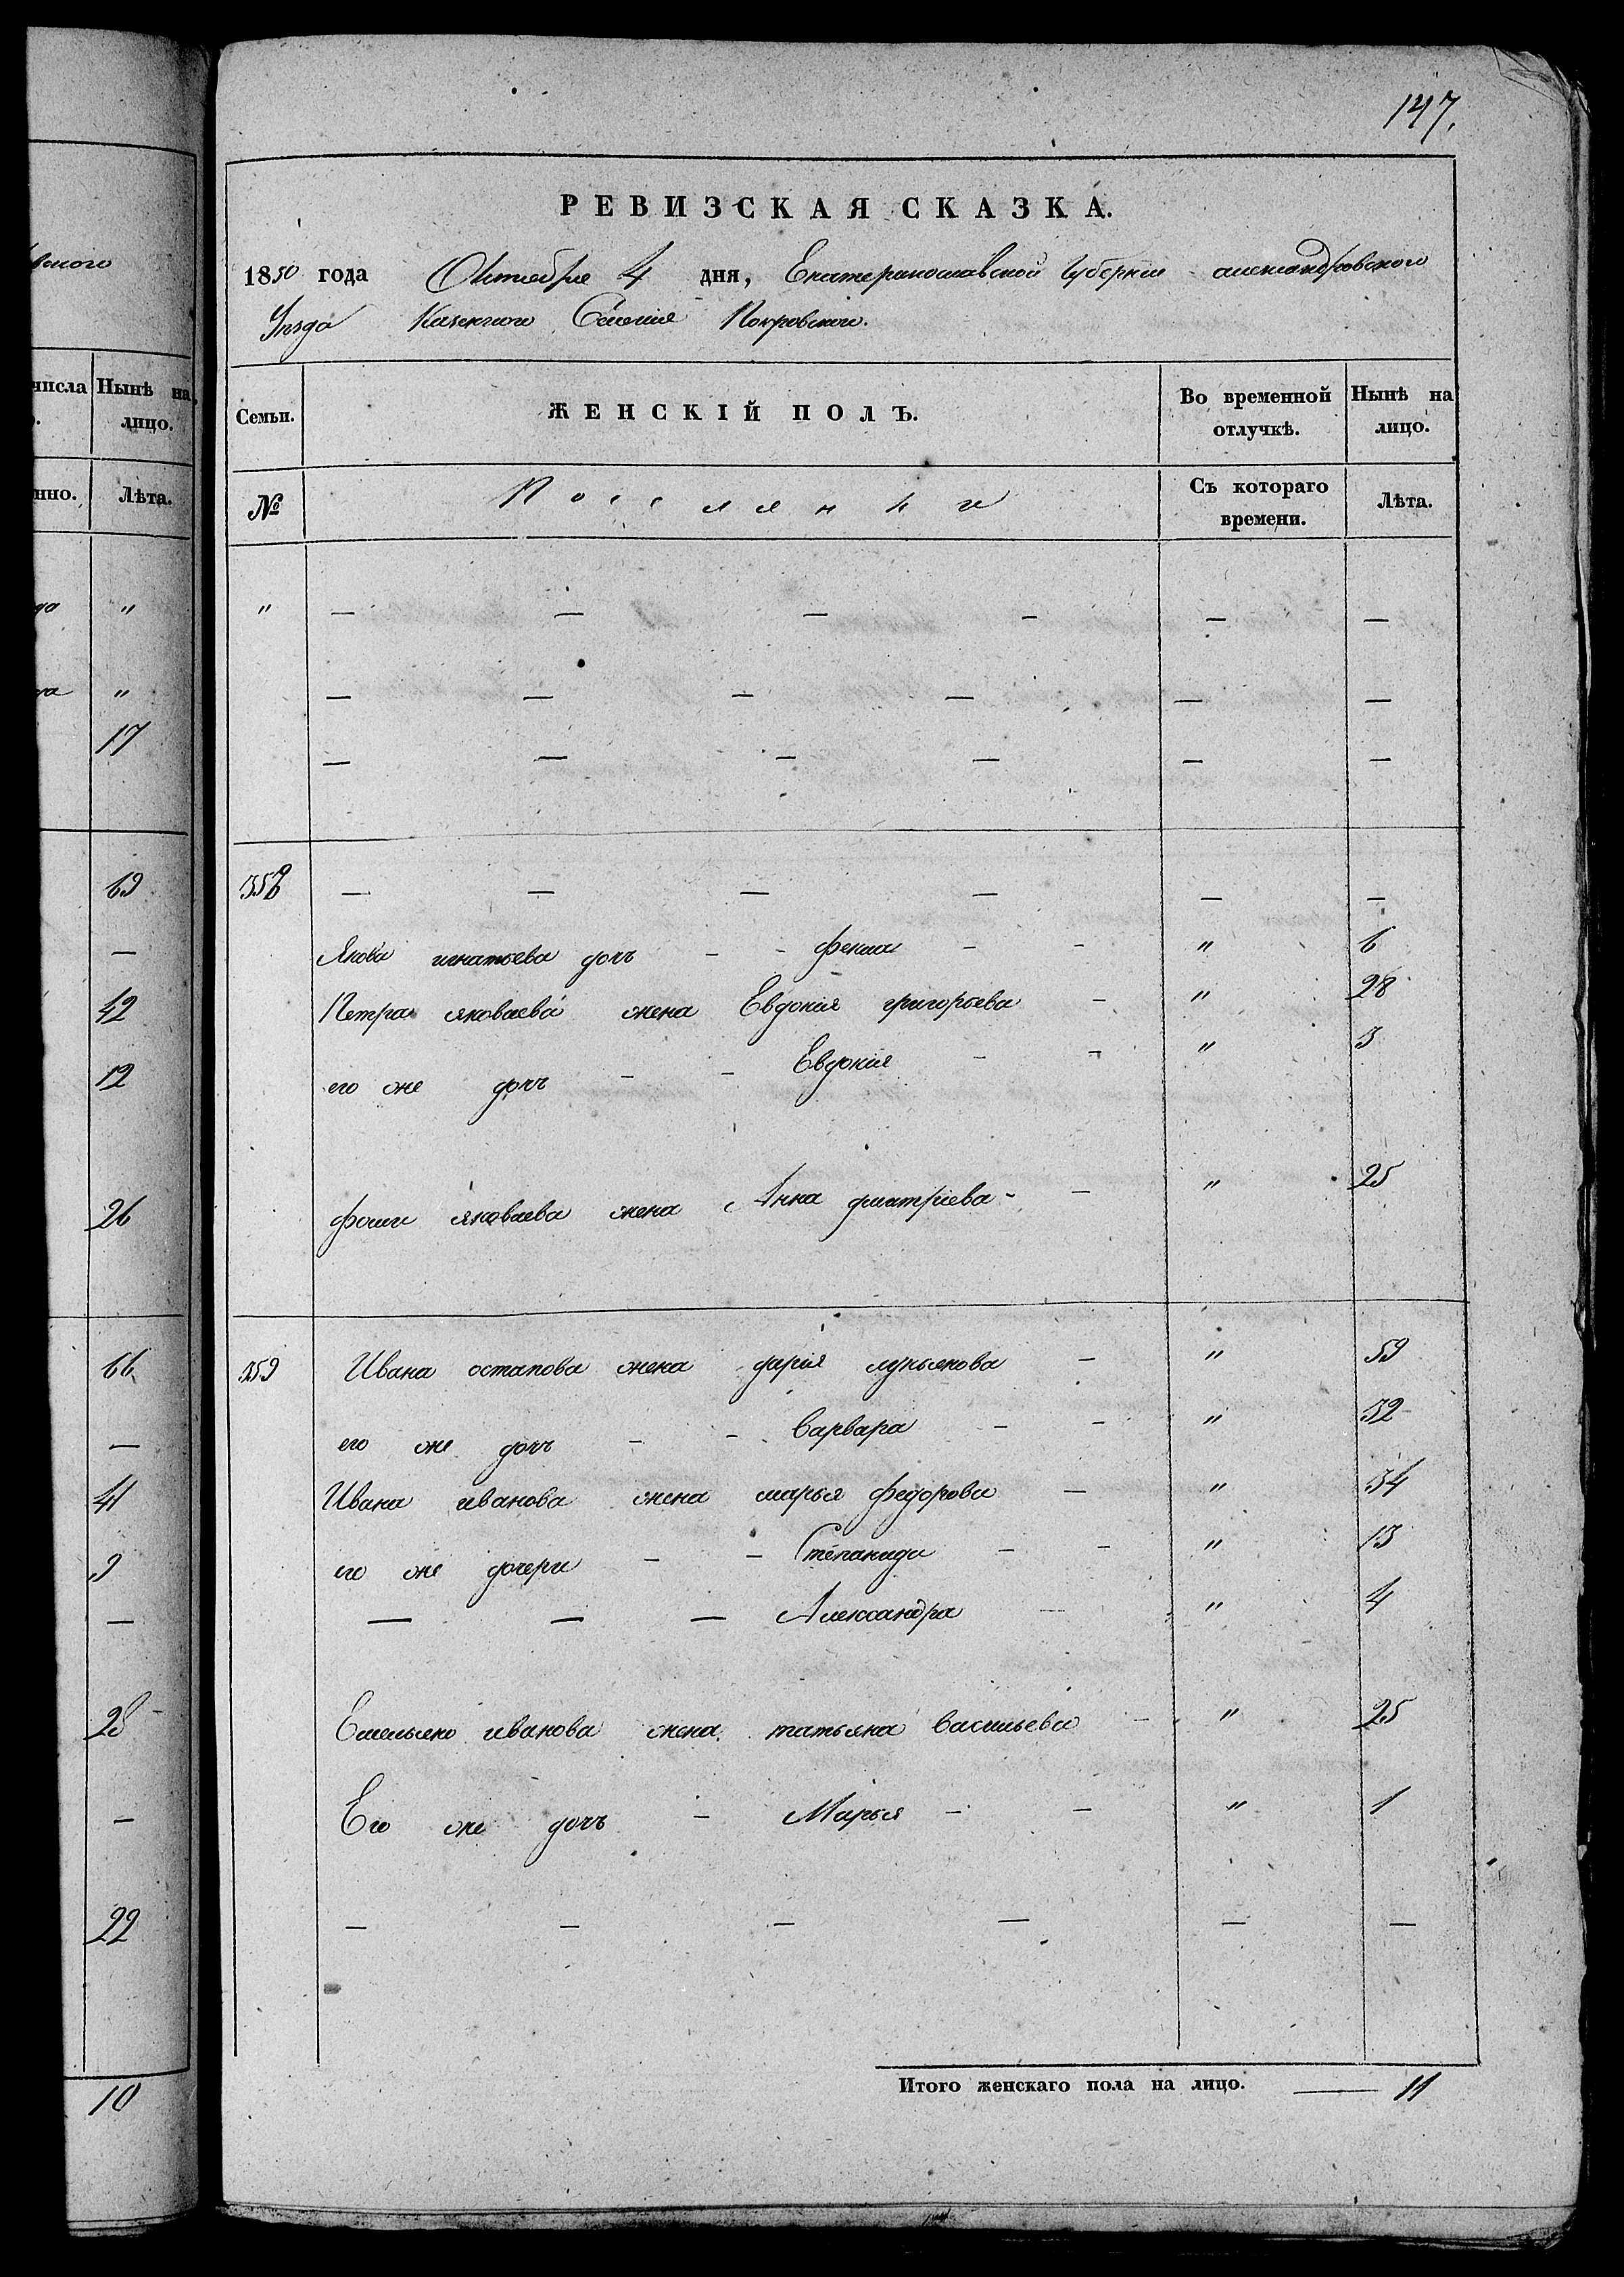 вского
числа Нынѣ на
о. лицо.
нно. Лѣта.
да "
да "
17
69
—
42
12
26
66
—
41
9
—
25
—
22
10
147.
РЕВИЗСКАЯ СКАЗКА.
1850 года Октября 4 дня, Екатеринославской Губернии александровского
Уезда Казенного Селения Покровского.
Семьи. ЖЕНСКІЙ ПОЛЪ. Во временной отлучкѣ. Нынѣ на лицо.
№ Поселянки Съ котораго времени. Лѣта.
" — — — — — —
— — — — — —
— — — — — —
358 — — — — — —
Якова игнатьева дочь - - фекла - - " 6
Петра яковлева жена Евдокия григорьева - " 28
его же дочь - - Евдокия - - " 3
фомы яковлева жена Анна дмитріева - - " 25
359 Ивана остапова жена дарія лукьянова - " 59
его же дочь - - варвара - - " 32
Ивана иванова жена марья федорова - " 34
его же дочери - - Степанида - - " 13
— — — Александра - " 4
Емельяна иванова жена татьяна васильева - " 25
Его же дочь - Марья - - " 1
— — — — — —
Итого женскаго пола на лицо. — 11